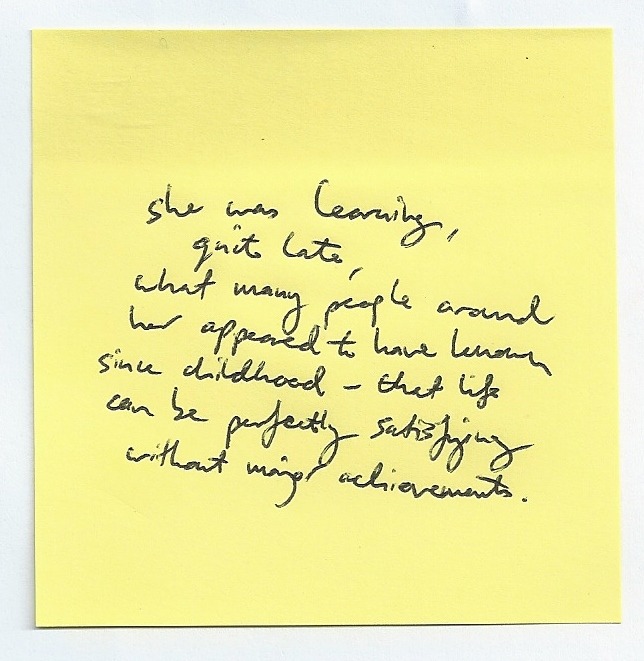 she was learning,
quite late,
what many people around
her appeared to have known
since childhood – that life
can be perfectly satisfying
without major achievements.